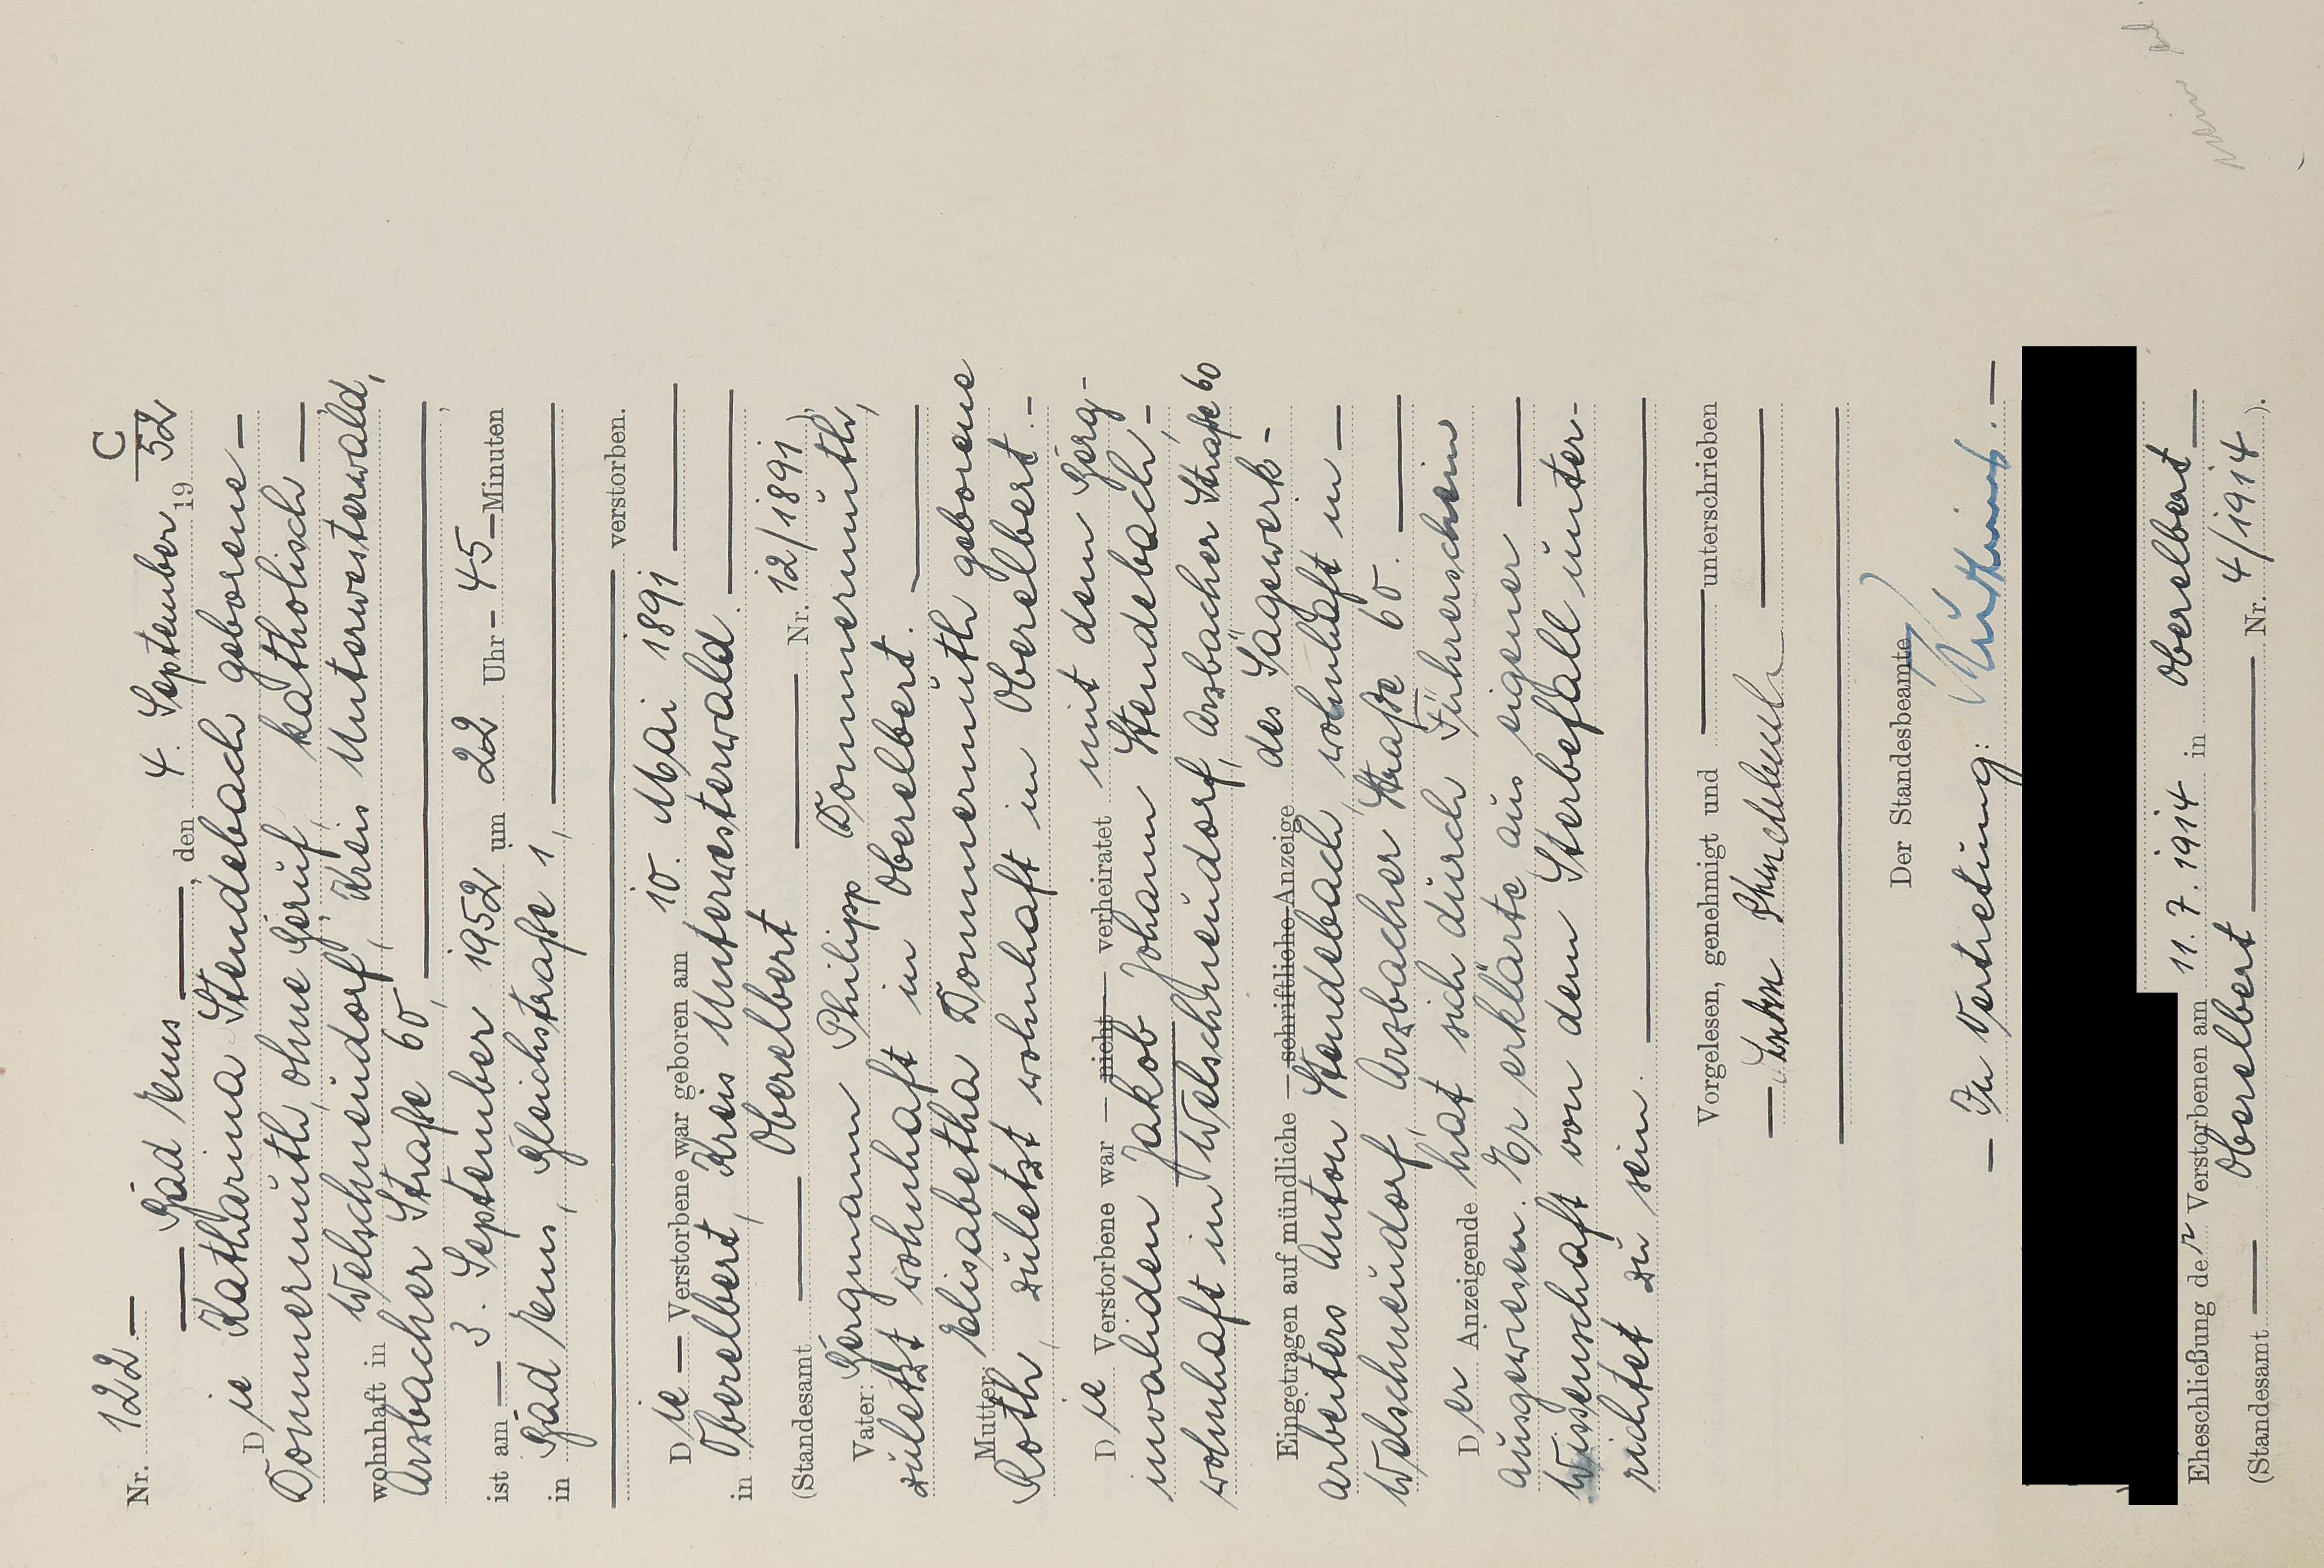 C
Nr. 122
Bad Ems, den 4. September 1952
Die Katharina Stendebach geborene
Donnermuth, ohne Beruf, katholisch
wohnhaft in Welschneudorf, Kreis Unterwesterwald,
Arzbacher Straße 60,
ist am 3. September 1952 um 22 Uhr 45 Minuten
in Bad Ems, Bleichstraße 1,
verstorben.
Die Verstorbene war geboren am 10. Mai 1891
in Oberelbert, Kreis Unterwesterwald.
(Standesamt Oberelbert Nr. 12/1891)
Vater: Bergmann Philipp Donnermuth,
zuletzt wohnhaft in Oberelbert.
Mutter: Elisabetha Donnermuth geborene
Roth, zuletzt wohnhaft in Oberelbert.
Die Verstorbene war — nicht — verheiratet mit dem Berg-
invaliden Jakob Johann Stendebach,
wohnhaft in Welschneudorf, Arzbacher Straße 60
Eingetragen auf mündliche — schriftliche Anzeige des Sägewerk-
arbeiters Anton Stendebach, wohnhaft in
Welschneudorf, Arzbacher Straße 60.
Der Anzeigende hat sich durch Führerschein
ausgewiesen. Er erklärte aus eigener
Wissenschaft von dem Sterbefall unter-
richtet zu sein.
Vorgelesen, genehmigt und unterschrieben
Anton Stendebach
Der Standesbeamte
In Vertretung:
Eheschließung der Verstorbenen am 11.7.1914 in Oberelbert
(Standesamt Oberelbert Nr. 4/1914).